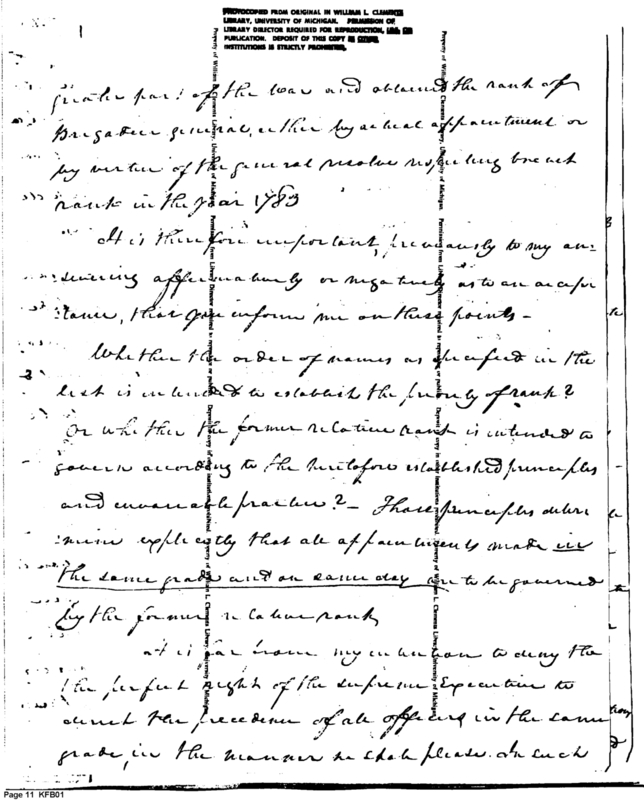 PHOTOCOPIED FROM ORIGINAL IN WILLIAM L. CLEMENTS
LIBRARY, UNIVERSITY OF MICHIGAN. PERMISSION OF
LIBRARY DIRECTOR REQUIRED FOR REPRODUCTION, OR
PUBLICATION. DEPOSIT OF THIS COPY IN OTHER
INSTITUTIONS IS STRICTLY PROHIBITED.
greater part of the war and obtained the rank of
Brigadier general, either by actual appointment or
by virtue of the general resolve respecting brevet
rank in the year 1783
It is therefore important, previously to my an=
swering affirmatively or negatively as to an accep
tance, that you inform me on these points -
Whether the order of names as specified in the
list is intended to establish the priority of rank?
Or whether the former relative rank is intended to
govern according to the heretofore established principles
and invariable practice? - Those principles deter
mine explicitly that all appointments made in
the same grade and on same day are to be governed
by the former relative rank
It is far from my intention to deny the
the perfect right of the supreme Executive to
direct the precedence of all officers in the same
grade, in the manner he shall please. In such
Page 11 KFB01